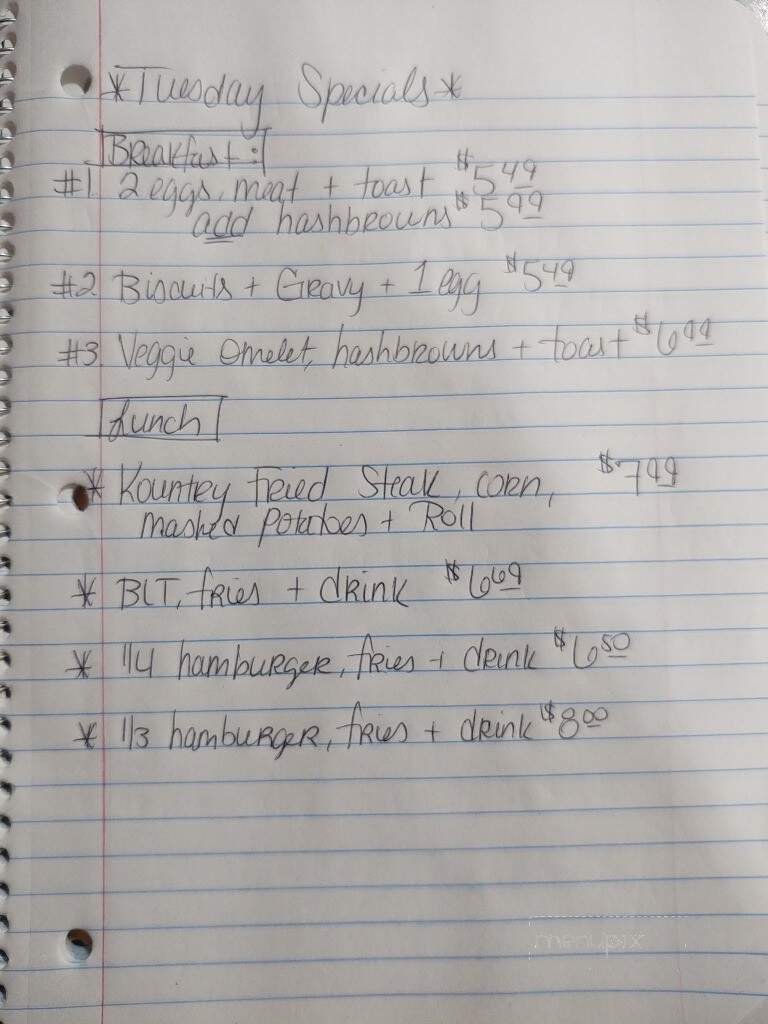 *Tuesday Specials*
Breakfast:
#1 2 eggs, meat + toast $5.49
add hashbrowns $5.99
#2 Biscuits + Gravy + 1 egg $5.49
#3 Veggie Omelet, hashbrowns + toast $6.99
Lunch
* Kountry Fried Steak, corn, $7.99
mashed potatoes + Roll
* BLT, fries + drink $6.69
* 1/4 hamburger, fries + drink $6.50
* 1/3 hamburger, fries + drink $8.00
menupix